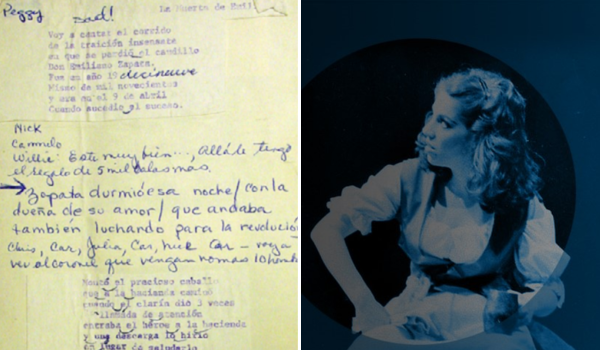 Peggy sad! La Muerte de Emil
Voy a cantar el corrido
de la traición insensata
en que se perdió el caudillo
Don Emiliano Zapata.
Fue en año 19 diecinueve
de mil novecientos
y era en el 9 de abril
Cuando sucedio el suceso.
Nick
Carmelo
Willie: Este muy bien..., Allá le tengo
el regalo de 5 mil balas mas.
Zapata durmió esa noche/ con la
dueña de su amor/ que andaba
también luchando para la revolució
Chris, Car, Julia, Car, Car - vaya
ver al coronel que vengan nomas 10 homb
Montó el precioso caballo
a la hacienda caminó
el clarín dio 3 veces
llamada de atención
entraba el héroe a la hacienda
y una descarga le hizo
en lugar de saludarlo